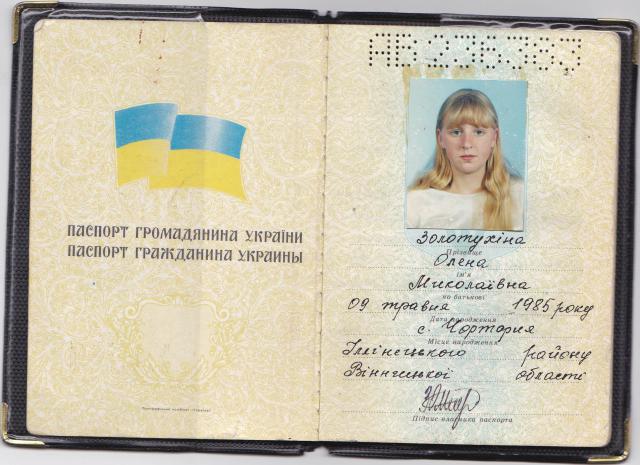 ПАСПОРТ ГРОМАДЯНИНА УКРАЇНИ
ПАСПОРТ ГРАЖДАНИНА УКРАИНЫ
Золотухіна
Прізвище
Олена
ім'я
Миколаївна
по батькові
09 травня 1985 року
Дата народження
с. Чортория
Місце народження
Іллінецького району
Вінницької області
Підпис власника паспорта